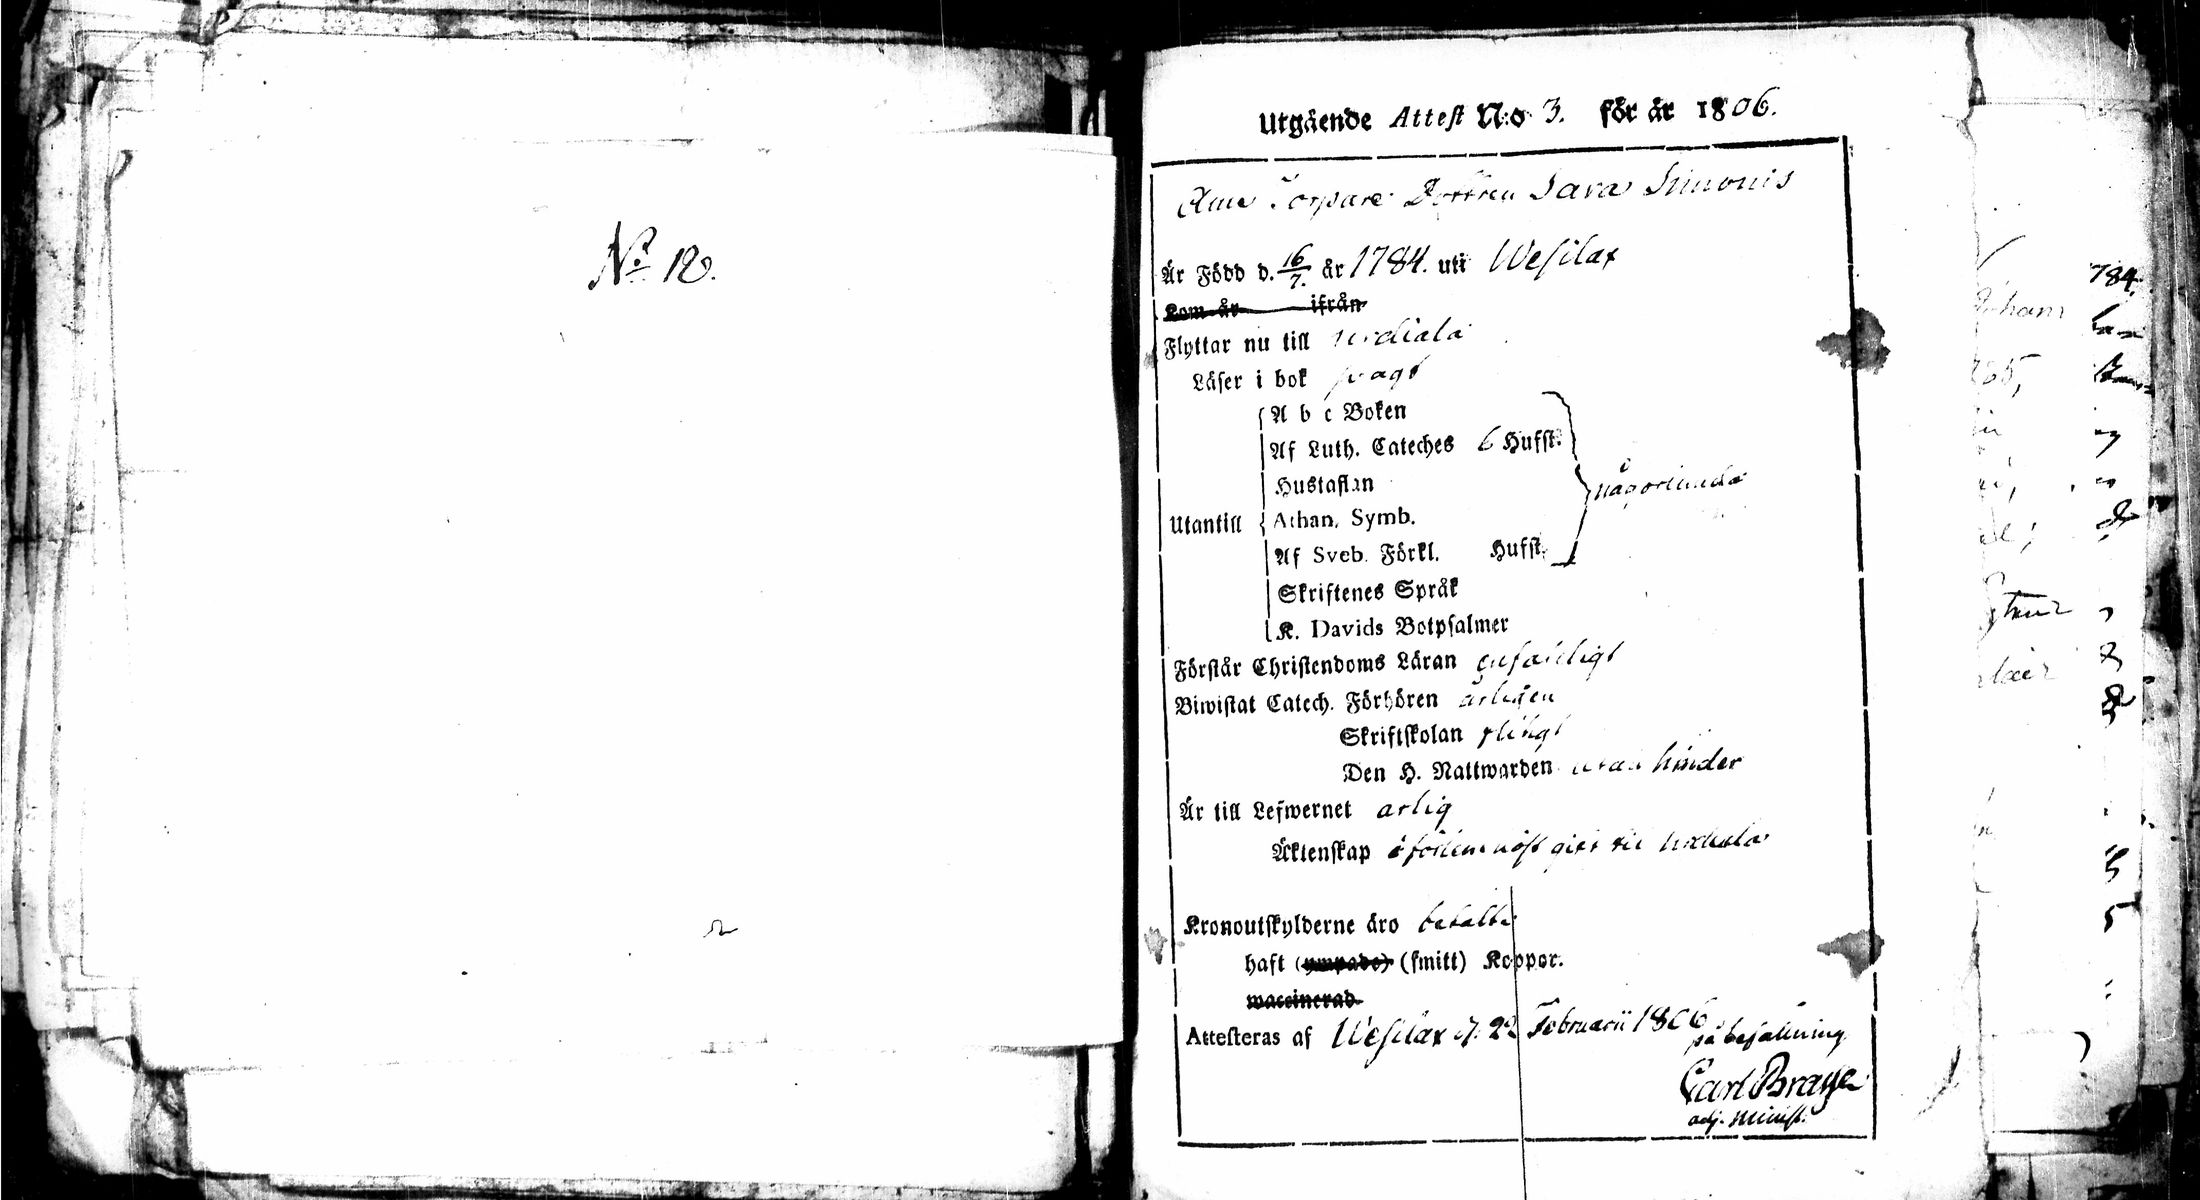 No 12.
Utgående Attest N:o 3. för år 1806.
Torpare Dottren Sara Simonis
Är Född d. 16/7. år 1784. uti Wesilax
Kom år ifrån
Flyttar nu till Urdiala
Läser i bok svagt
A b c Boken
Af Luth. Cateches 6 Hufst.
Hustaflan
någorlunda
Utantill
Athan. Symb.
Af Sveb. Förkl. Hufst.
Skriftenes Språk
K. Davids Botpsalmer
Förstår Christendoms Läran enfaldigt
Biwistat Catech. Förhören årligen
Skriftskolan flitigt
Den H. Nattwarden utan hinder
Är till Lefwernet ärlig
Äktenskap gift til Urdiala
Kronoutskylderne äro betalte
haft (ympade) (smitt) Koppor.
waccinerad.
Attesteras af Wesilax d. Februarii 1806
på befallning
Carl Braxe
adj. Minist.
784.